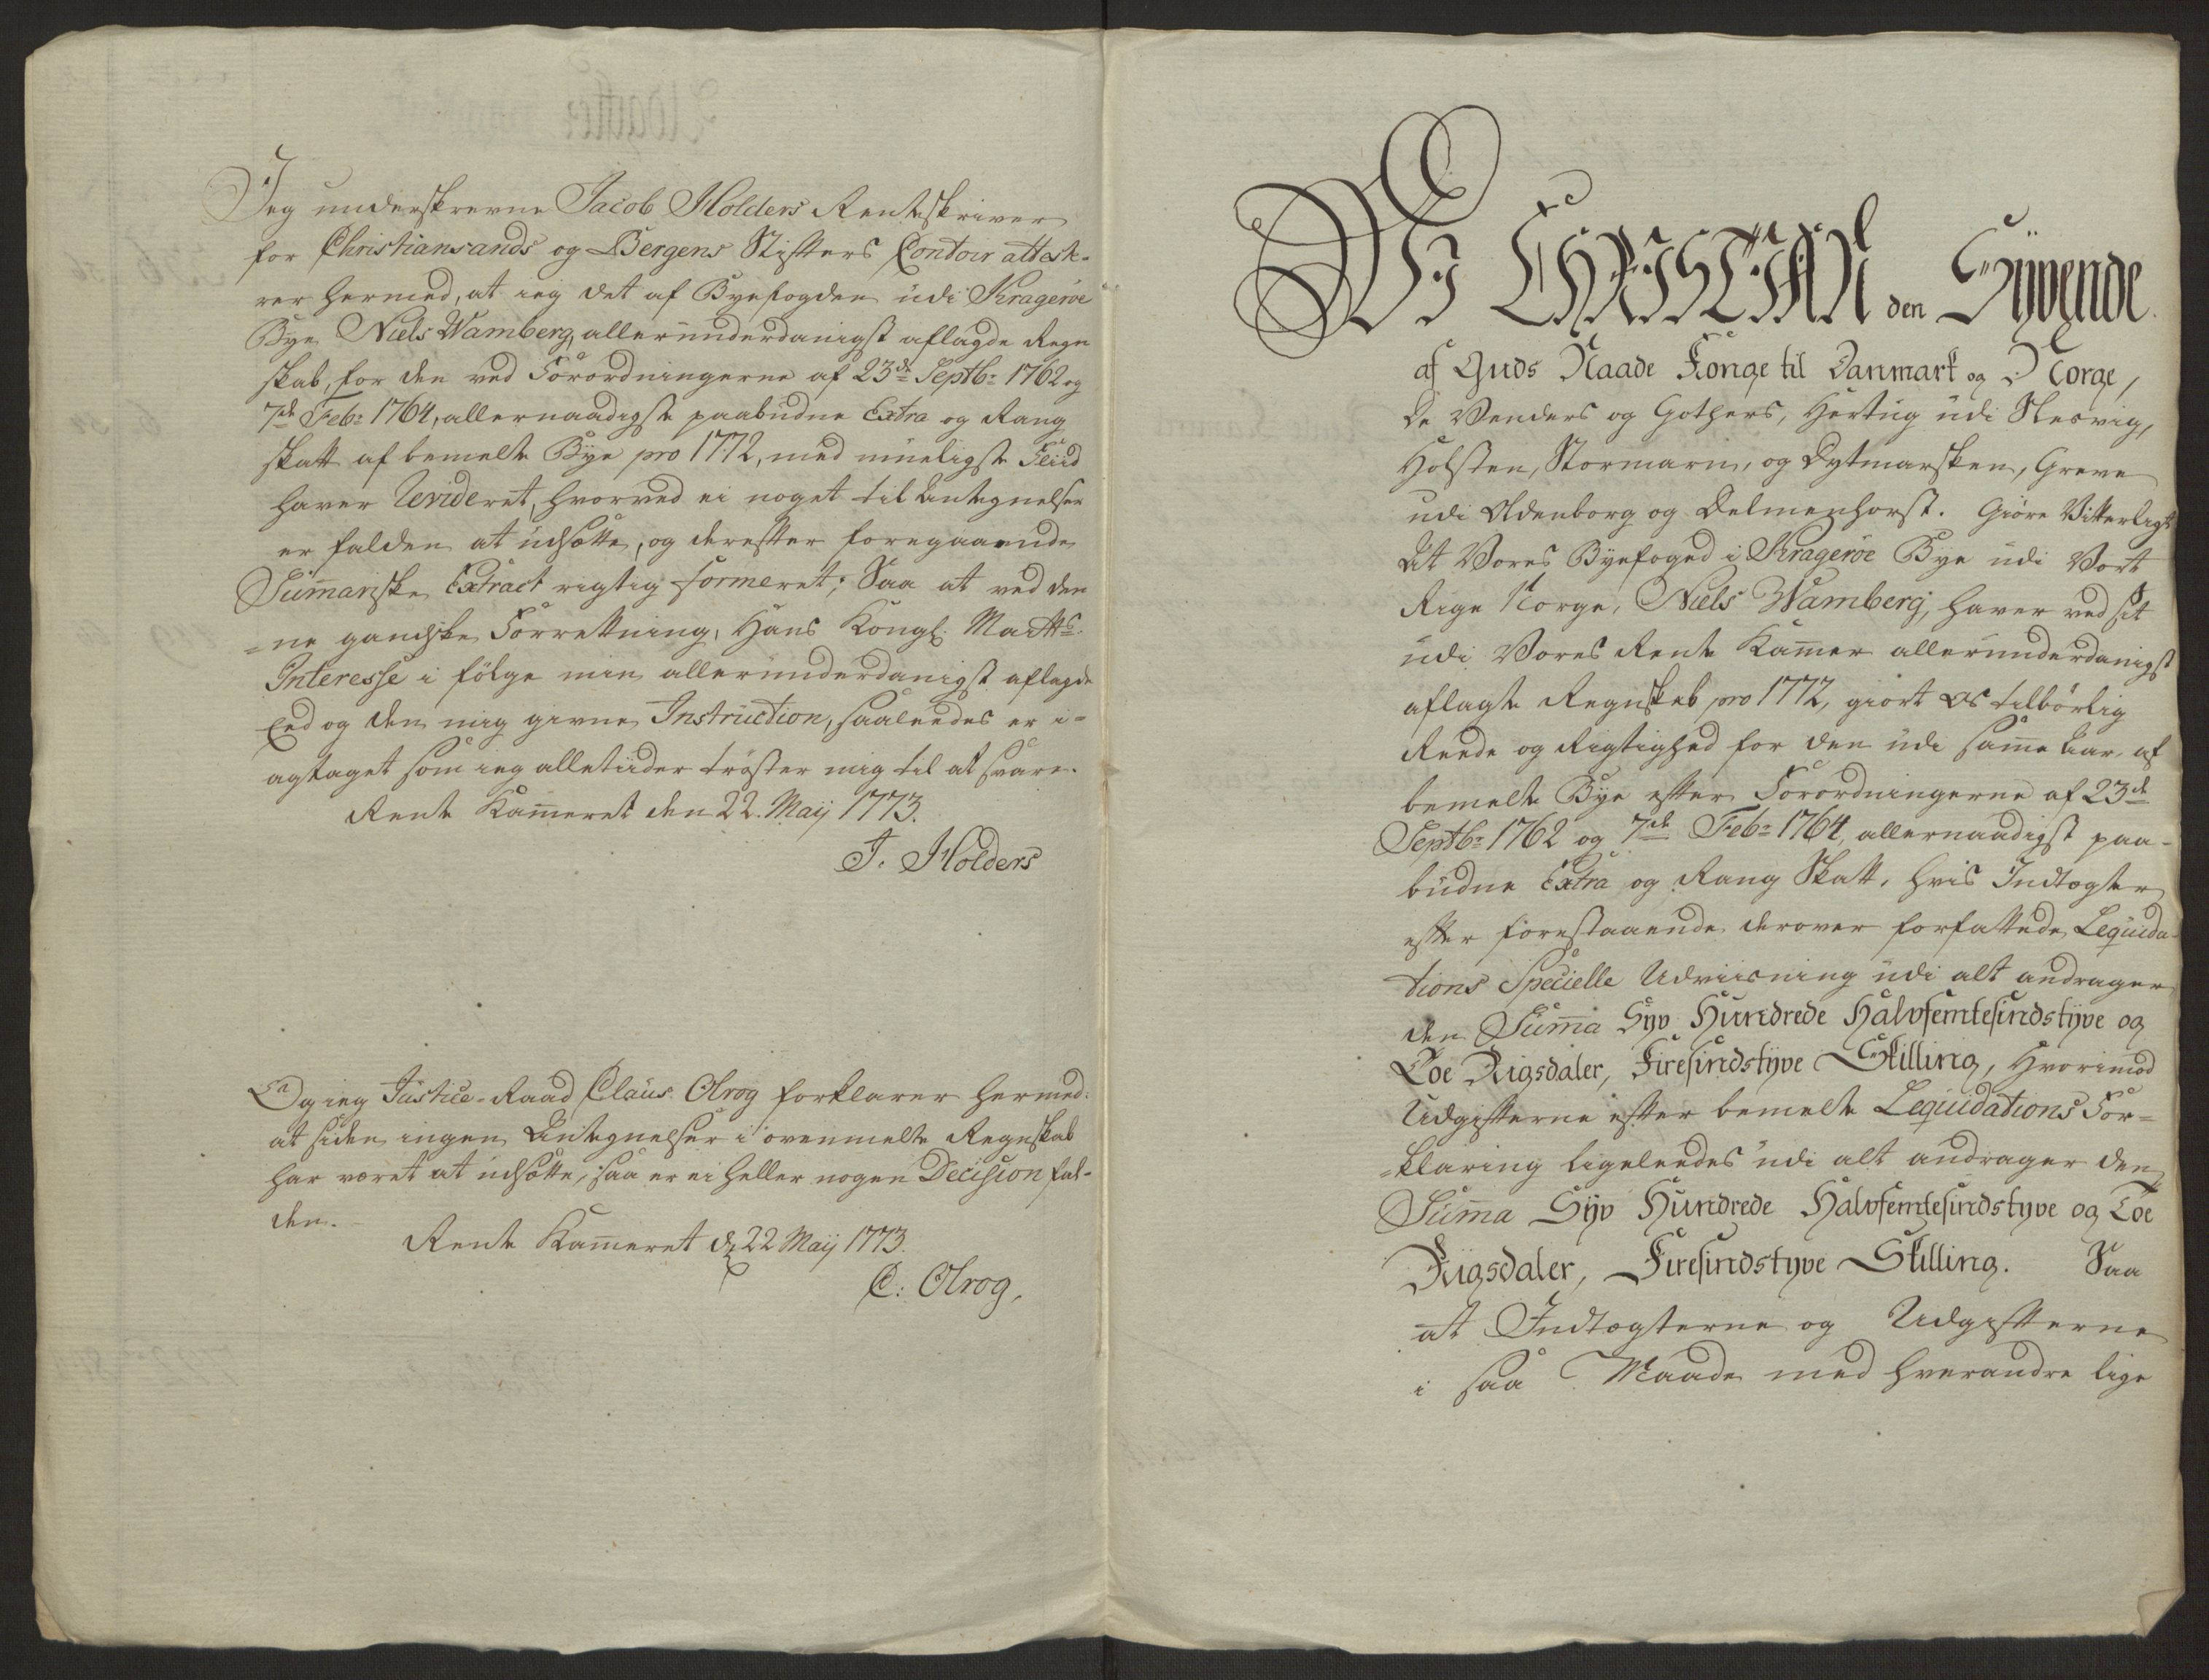 Jeg underskrevne Jacob Holders Renteskriver
for Christiansands og Bergens Stifters Contoir atteste-
rer hermed, at ieg det af Byefogden udi Kragerøe
Bye Niels Wamberg, allerunderdanigst aflagde Regn
skab, for den ved Forordningerne af 23de Septbr: 1762 og
7de Febr: 1764, allernaadigst paabudne Extra og Rang
skatt af bemelte Bye pro 1772, med mueligste Fliid
haver Revideret, hvorved ei noget til Antegnelser
er falden at udsætte, og derefter foregaaende
Summariske Extract rigtig formeret; Saa at ved den
=ne gandske Forretning, Hans Kongl: Maytts:
Interesse i følge min allerunderdanigst aflagde
Eed og den mig givne Instruction, saaleedes er i=
agtaget som ieg alletiider trøster mig til at svare.
Rente Kammeret den 22. Maij 1773.
J. Holders
Og ieg Justice-Raad Claus Olrog forklarer hermed:
at siden ingen Antegnelser i ovenmelte Regnskab
har været at udsætte, saa er ei heller nogen Decision fal-
den.
Rente Kammeret d: 22 Maij 1773.
C: Olrog.
WI CHRISTIAN den Syvende.
af Guds Naade Konge til Danmark og Norge,
De Venders og Gothers, Hertug udi Slesvig,
Holsten, Stormarn, og Dytmarsken, Greve
udi Oldenborg og Delmenhorst. Giøre Vitterligt
At Vores Byefoged i Kragerøe Bye udi Vort
Rige Norge, Niels Wamberg, haver ved sit
udi Vores Rente Kammer allerunderdanigst
aflagte Regnskab pro 1772, giort os tilbørlig
Reede og Rigtighed for den udi samme Aar, af
bemelte Bye efter Forordningerne af 23de
Septbr: 1762 og 7de Febr: 1764, allernaadigst paa-
budne Extra og Rang Skatt, hvis Indtægter
efter forestaaende derover forfattede Leqvida-
tions Specielle Udviisning udi alt andrager
den Summa Syv Hundrede Halvfemtesindstyve og
Toe Rigsdaler, Firesindstyve Skilling, Hvorimod
Udgifterne efter bemelte Leqvidations For=
=klaring ligeleedes udi alt andrager den
Summa Syv Hundrede Halvfemtesindstyve og Toe
Rigsdaler, Firesindstyve Skilling. Saa
at Indtægterne og Udgifterne
i saa Maade med hverandre lige